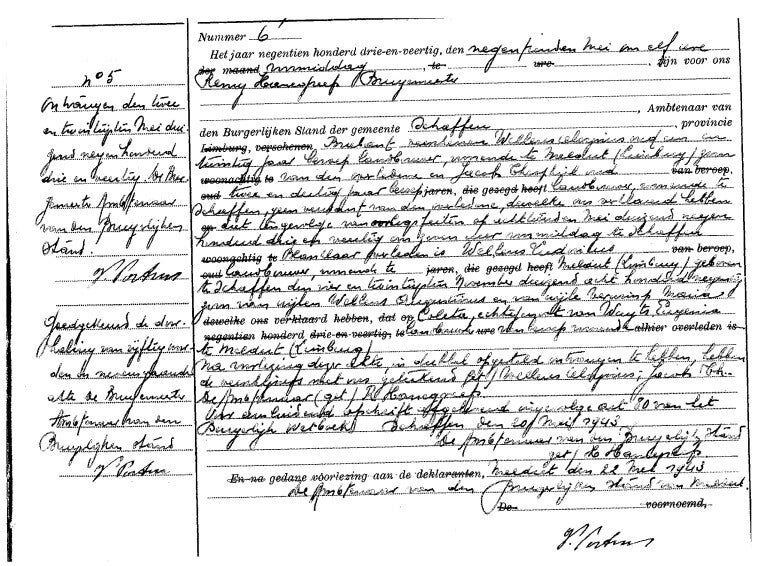 Nummer 6
Het jaar negentien honderd drie-en-veertig, den negentienden Mei om elf ure
der maand voormiddag te ure, zijn voor ons
Remy Hanegreef Burgemeester
, Ambtenaar van
den Burgerlijken Stand der gemeente Schaffen, provincie
Limburg, verschenen, Brabant verschenen Wellens negen en
twintig jaar beroep landbouwer, wonende te Meldert (Limburg) zoon
woonachtig te van den overledene en Jacobs Theophiel oud van beroep,
oud twee en dertig jaar beroep jaren, die gezegd heeft landbouwer, wonende te
Schaffen, geen verwant van den overledene, dewelke ons verklaard hebben
en dit ingevolge van oorlogsfeiten op achttienden Mei duizend negen
honderd drie en veertig om zeven uur voormiddag te Schaffen
woonachtig te overleden is Wellens Ludovicus van beroep,
oud landbouwer, wonende te jaren, die gezegd heeft Meldert (Limburg) geboren
te Schaffen den vier en twintigsten November duizend acht honderd negentig
zoon van wijlen Wellens Augustinus en van wijle Maria
dewelke ons verklaard hebben, dat op Coleta, echtgenoot van Eugenia
negentien honderd drie-en-veertig, te landbouwster ure van beroep wonende alhier overleden is
te Meldert (Limburg)
Na voorlezing dezer akte, in dubbel opgesteld ontvangen te hebben, hebben
de verklaarders met ons geteekend (get) Wellens ; Jacobs Th.
De Ambtenaar (get) R Hanegreef
Voor eensluidend afschrift afgeleverd ingevolge art 80 van het
Burgerlijk Wetboek Schaffen den 20n Mei 1943
De Ambtenaar van den Burgerlijke Stand
get/ R Hanegreef
En na gedane voorlezing aan de deklaranten, Meldert den 22 Mei 1943
De Ambtenaar van den Burgerlijken Stand van Meldert.
De voornoemd,
no 5
Ontvangen den twee
en twintigsten Mei dui-
zend negen honderd
drie en veertig. De Bur-
gemeester Ambtenaar
van den Burgerlijken
Stand.
Goedgekeurd de door-
haling van vijftig woor-
den en nevenstaande
akte De Burgemeester
Ambtenaar van den
Burgerlijken Stand